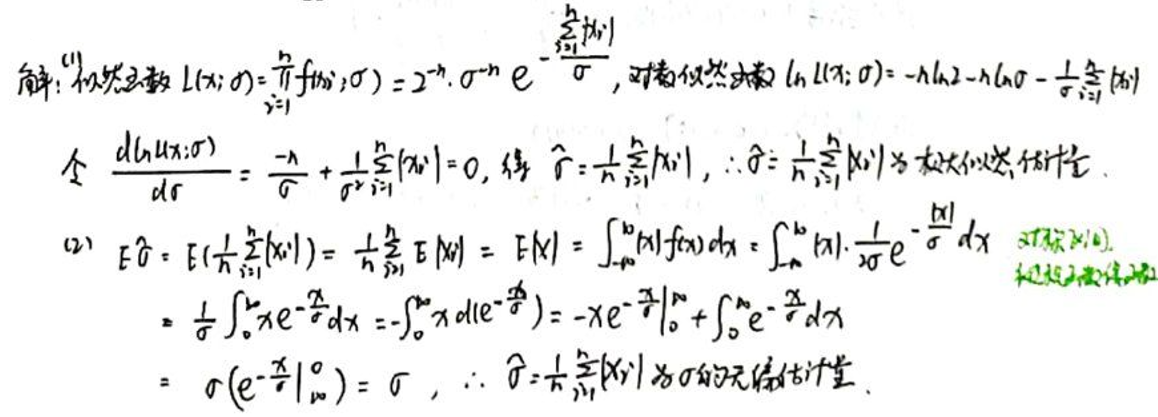 解:(1)似然函数 L(x;σ)=∏_{i=1}^{n} f(x_i;σ)=2^{-n}·σ^{-n} e^{-\frac{\sum_{i=1}^{n}|x_i|}{σ}}, 对数似然函数 ln L(x;σ)=-nln2-nlnσ-\frac{1}{σ}\sum_{i=1}^{n}|x_i|
令 \frac{dlnL(x;σ)}{dσ}=\frac{-n}{σ}+\frac{1}{σ^2}\sum_{i=1}^{n}|x_i|=0, 得 \hat{σ}=\frac{1}{n}\sum_{i=1}^{n}|x_i|, ∴\hat{σ}=\frac{1}{n}\sum_{i=1}^{n}|x_i| 为极大似然估计量.
(2) E\hat{σ}=E(\frac{1}{n}\sum_{i=1}^{n}|x_i|)=\frac{1}{n}\sum_{i=1}^{n}E|x_i|=E|x|=\int_{-∞}^{∞}|x|f(x)dx=\int_{-∞}^{∞}|x|·\frac{1}{2σ}e^{-\frac{|x|}{σ}}dx
对称区间.
=\frac{1}{σ}\int_{0}^{∞}xe^{-\frac{x}{σ}}dx=-\int_{0}^{∞}xd(e^{-\frac{x}{σ}})=-xe^{-\frac{x}{σ}}|_{0}^{∞}+\int_{0}^{∞}e^{-\frac{x}{σ}}dx
=σ(e^{-\frac{x}{σ}}|_{∞}^{0})=σ, ∴ \hat{σ}=\frac{1}{n}\sum_{i=1}^{n}|x_i| 为σ的无偏估计量.